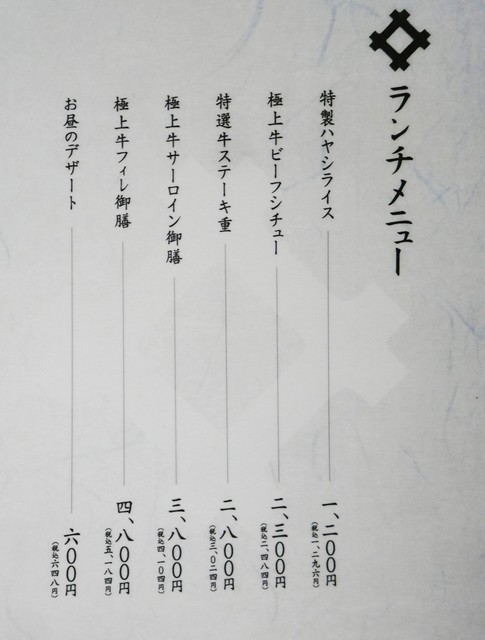 ランチメニュー
特製ハヤシライス 一、二〇〇円
（税込一、二九六円）
極上牛ビーフシチュー 二、三〇〇円
（税込二、四八四円）
特選牛ステーキ重 二、八〇〇円
（税込三、〇二四円）
極上牛サーロイン御膳 三、八〇〇円
（税込四、一〇四円）
極上牛フィレ御膳 四、八〇〇円
（税込五、一八四円）
お昼のデザート 六〇〇円
（税込六四八円）